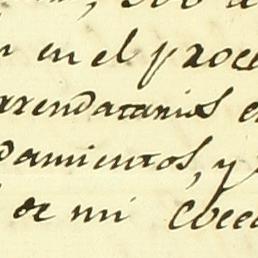 en el proce
arrendatarios e
damientos, y
de mi Coce